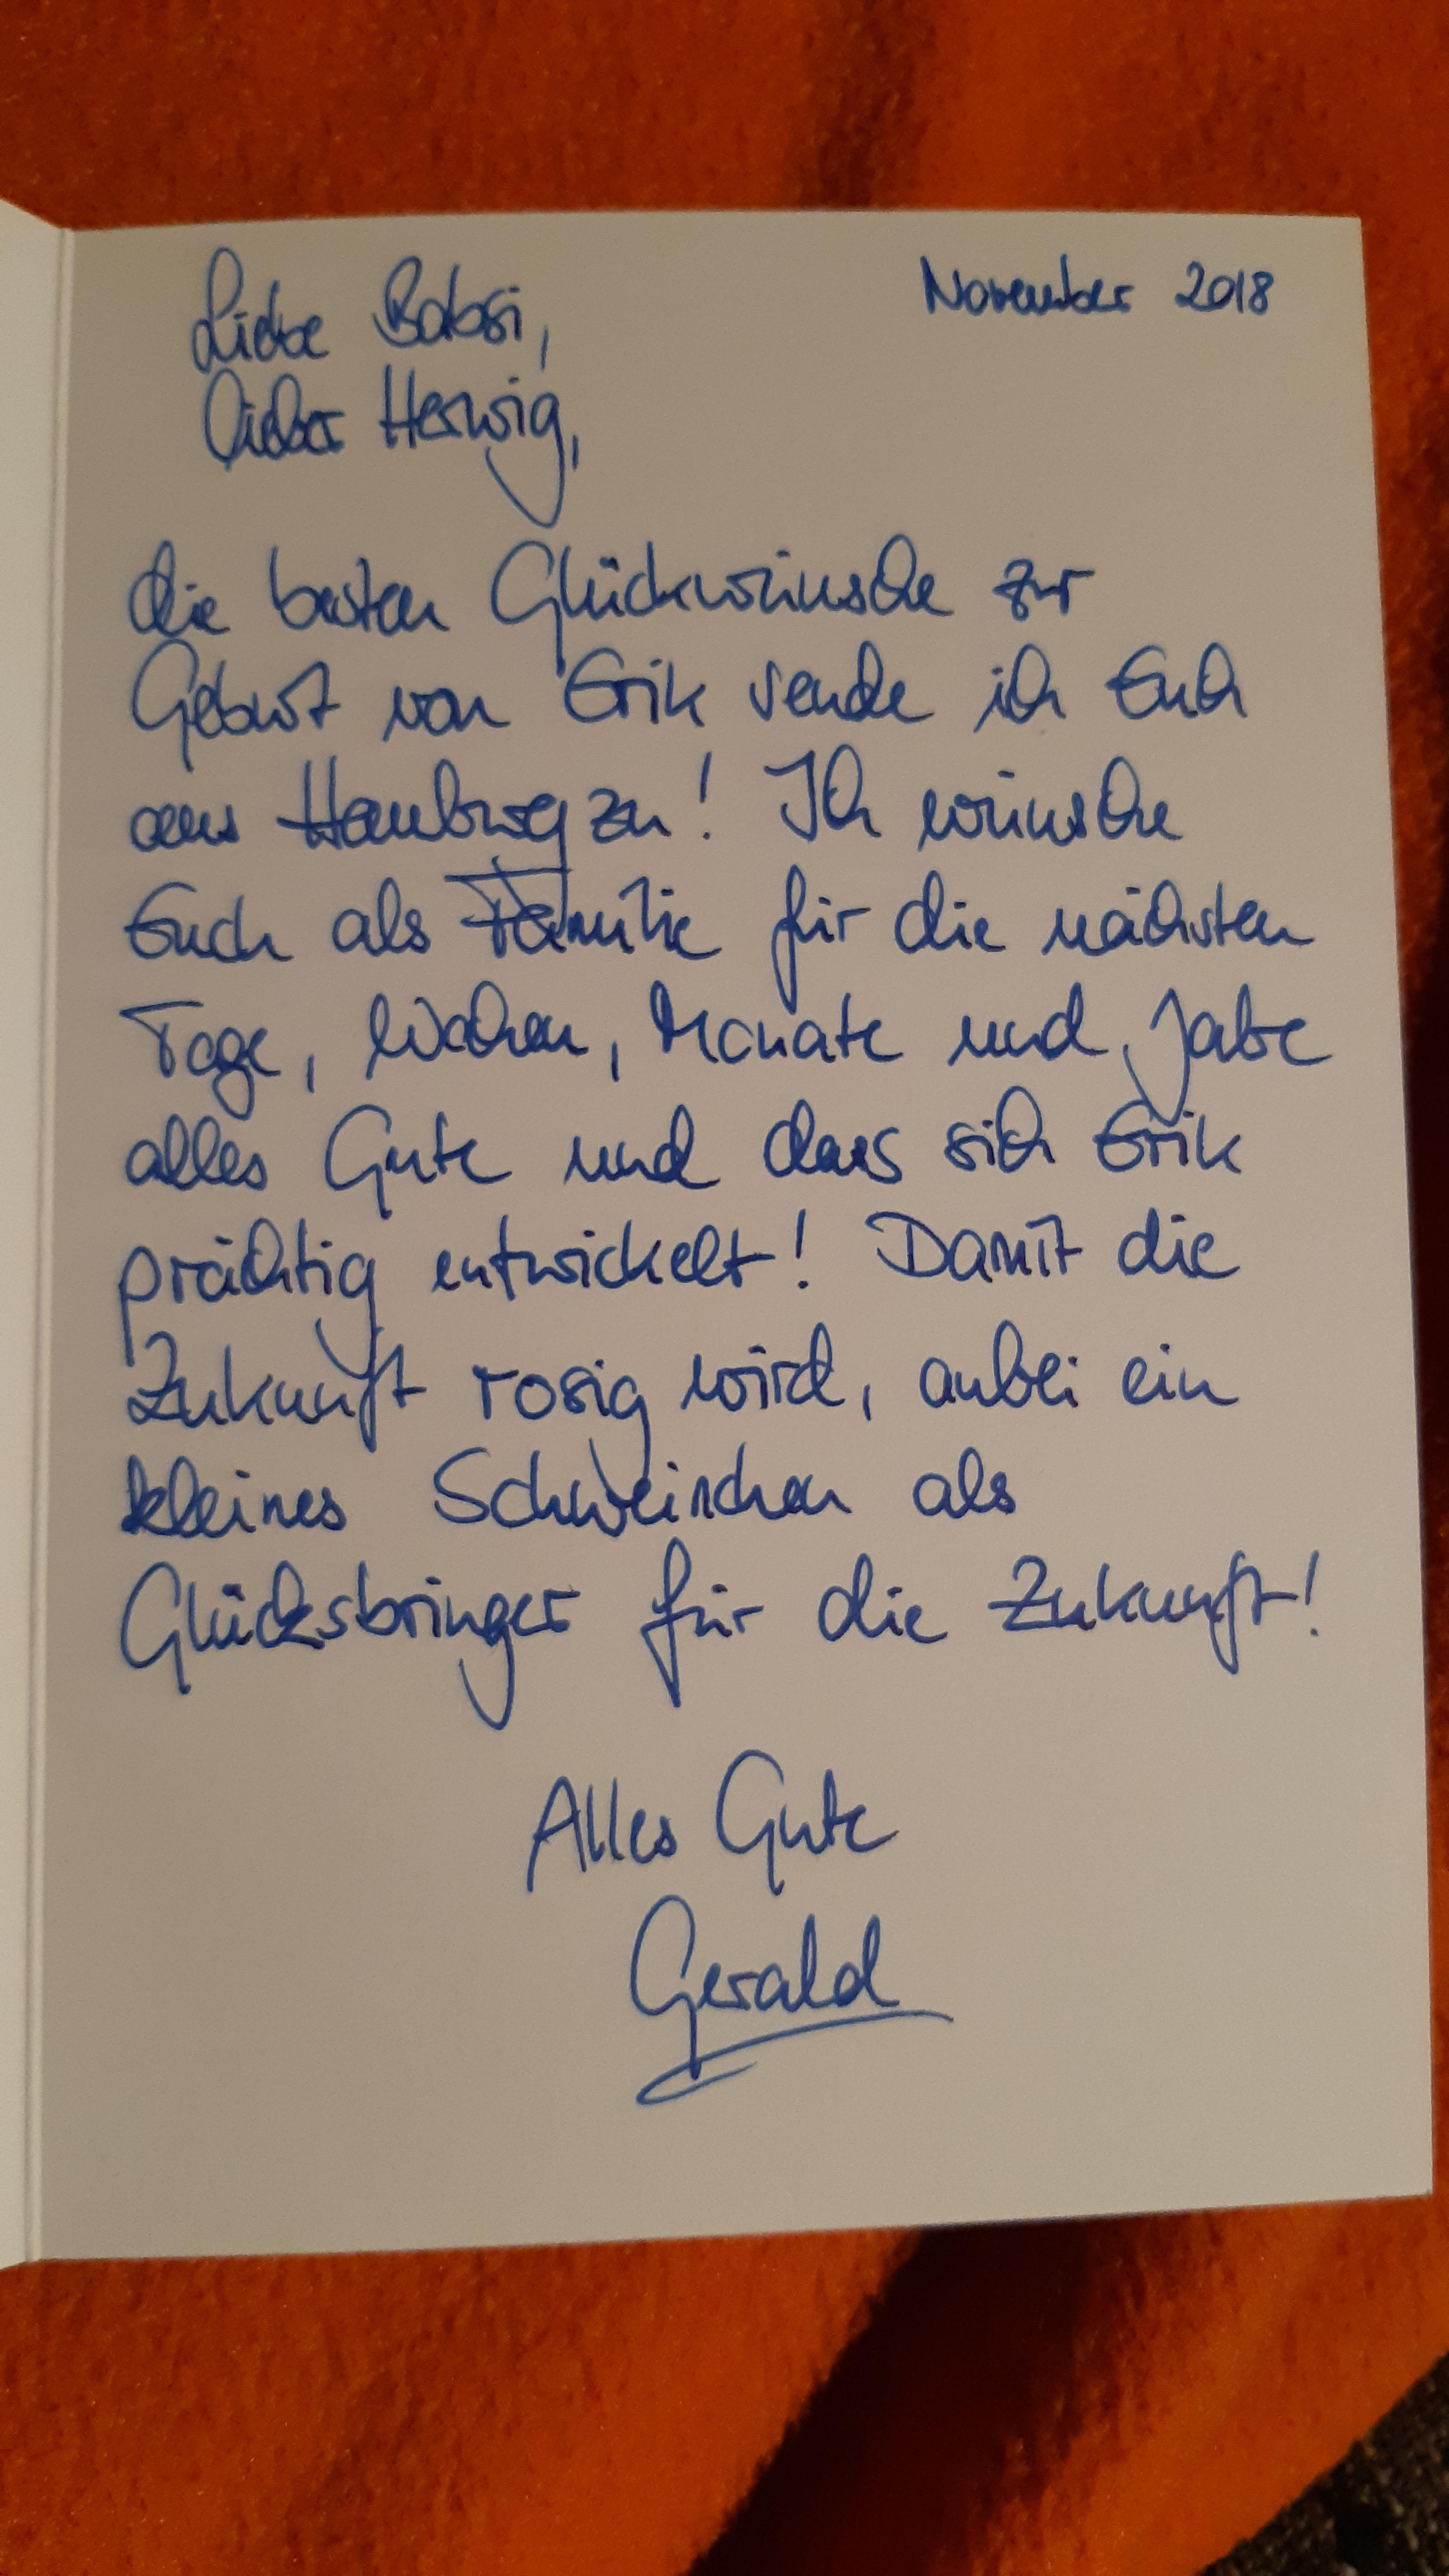 November 2018
Liebe Babsi,
lieber Herwig,
die besten Glückwünsche zur
Geburt von Erik sende ich Euch
aus Hamburg zu! Ich wünsche
Euch als Familie für die nächsten
Tage, Wochen, Monate und Jahre
alles Gute und dass sich Erik
prächtig entwickelt! Damit die
Zukunft rosig wird, anbei ein
kleines Schweinchen als
Glücksbringer für die Zukunft!
Alles Gute
Gerald